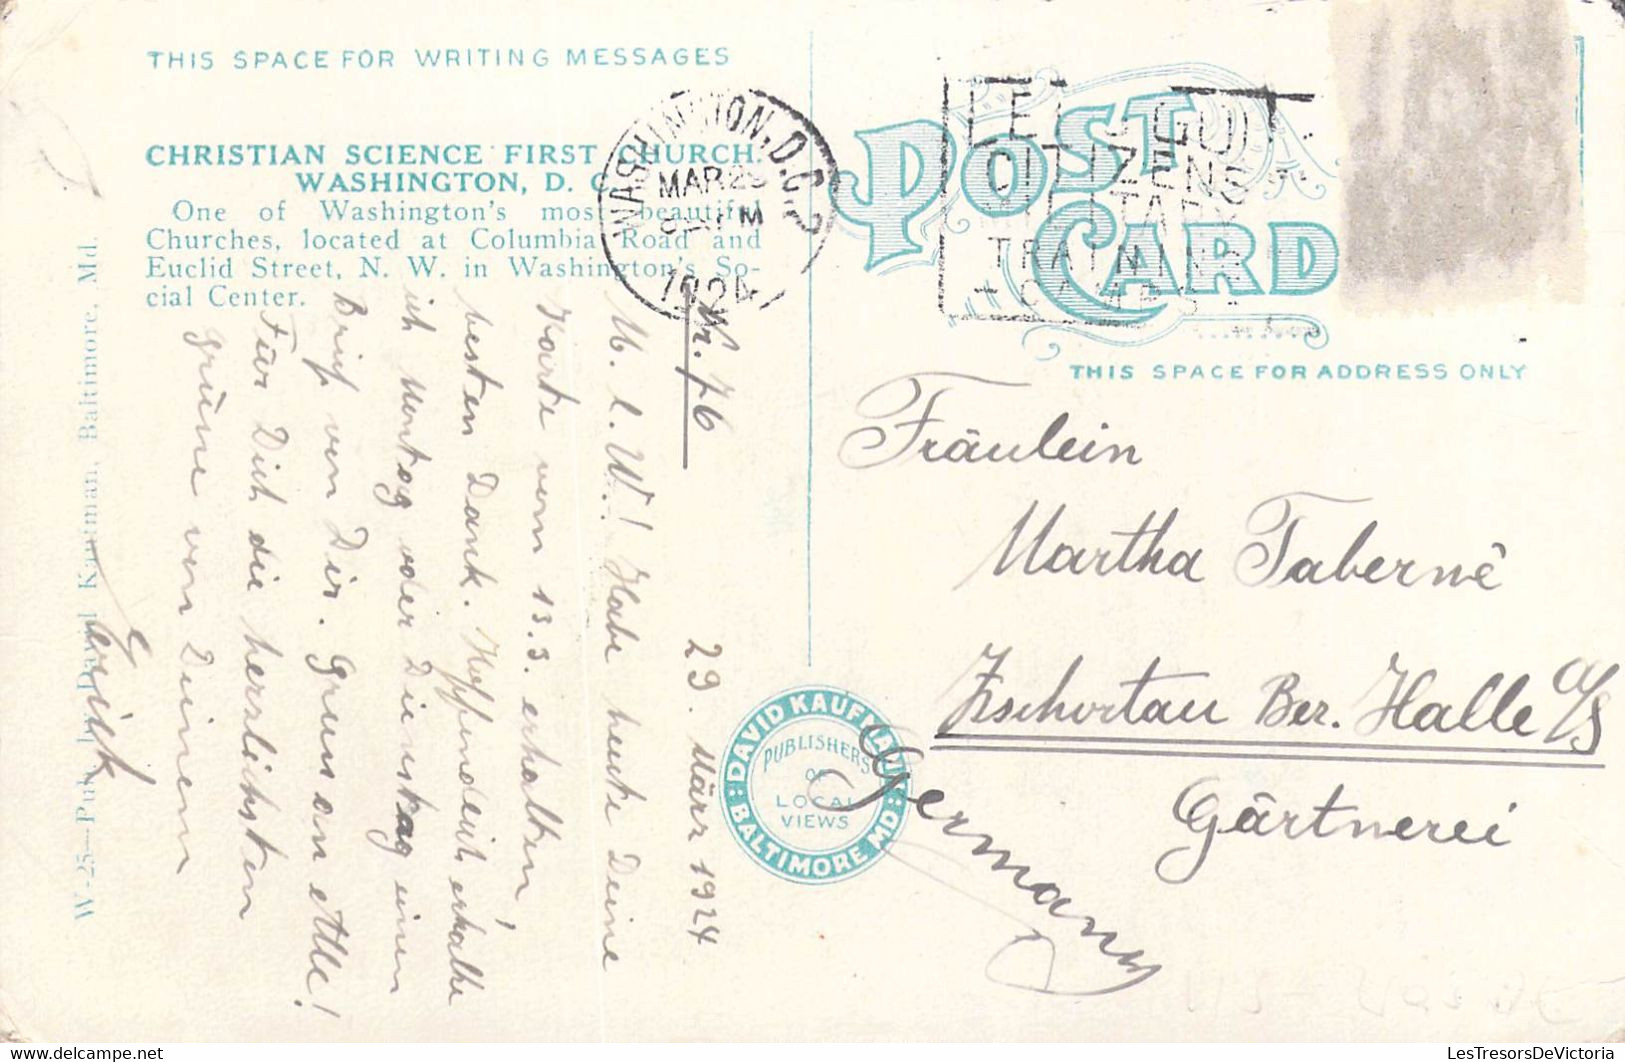 THIS SPACE FOR WRITING MESSAGES
CHRISTIAN SCIENCE FIRST CHURCH.
WASHINGTON, D. C.
One of Washington's most beautiful
Churches, located at Columbia Road and
Euclid Street, N. W. in Washington's So-
cial Center.
W-25—Pub. by David Kaufman, Baltimore, Md.
WASHINGTON, D.C.
MAR 29
PM
1924
CITIZENS
MILITARY
TRAINING
CAMPS
POST CARD
THIS SPACE FOR ADDRESS ONLY
Nr. 76
29. März 1924
M. l. W! Habe heute Deine
Karte vom 13.3. erhalten,
besten Dank. Hoffendlich erhalte
ich Montag oder Dienstag einen
Brief von Dir. Gruss an Alle!
Für Dich die herzlichsten
Grüsse von Deinem
Erich
Fräulein
Martha Taberné
Zschortau Bez. Halle a/S
Gärtnerei
Germany
DAVID KAUFMAN
PUBLISHERS
OF
LOCAL
VIEWS
BALTIMORE MD.
LesTresorsDeVictoria